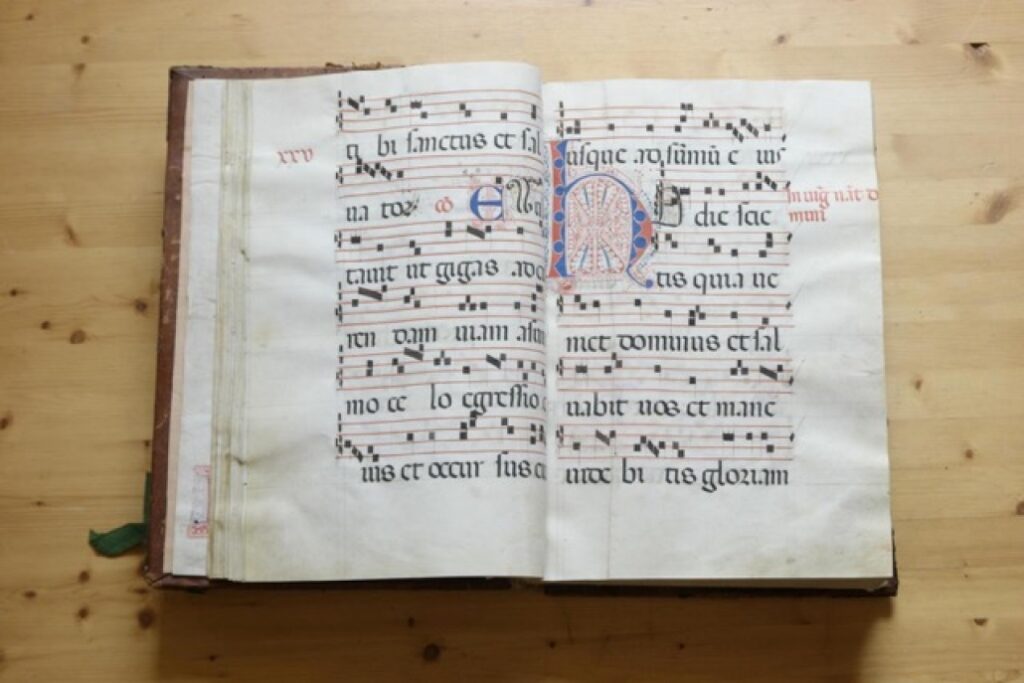 xxv
ti bi sanctus et sal
ua tor
tauit ut gigas ad c
ren dam uiam asum
mo ce lo egressio e
ius et occur sus
usque ad sūmū e ius
HO die scie
In uig̃ nāt do
mini
tis quia ue
niet dominus et sal
uabit uos et mane
uide bi tis gloriam